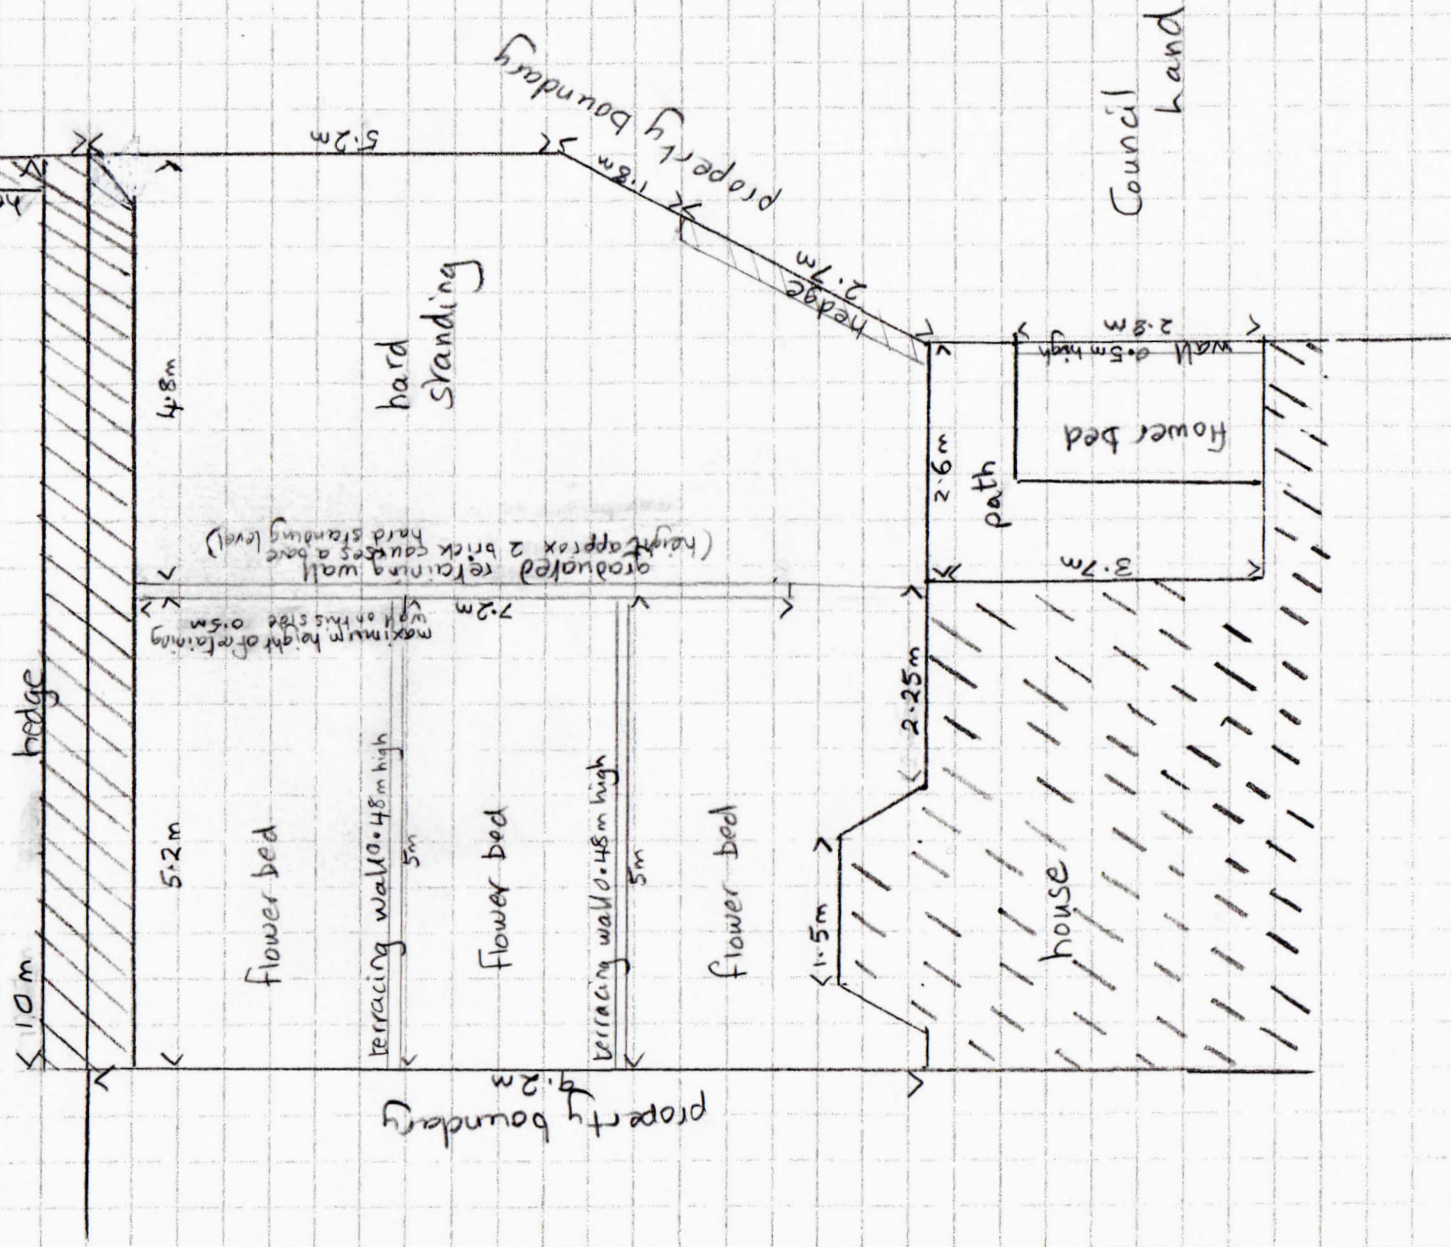 property boundary
5.2m
1.8m
2.7m
hedge
Council
Land
4.8m
hard
standing
2.8m
wall 0.5m high
flower bed
path
2.6m
3.7m
graduated retaining wall
(height approx 2 brick courses above
hard standing level)
7.2m
maximum height of retaining
wall on this side 0.5m
hedge
10m
5.2m
flower bed
terracing wall 0.48m high
5m
flower bed
terracing wall 0.48m high
5m
flower bed
2.25m
1.5m
house
9.2m
property boundary